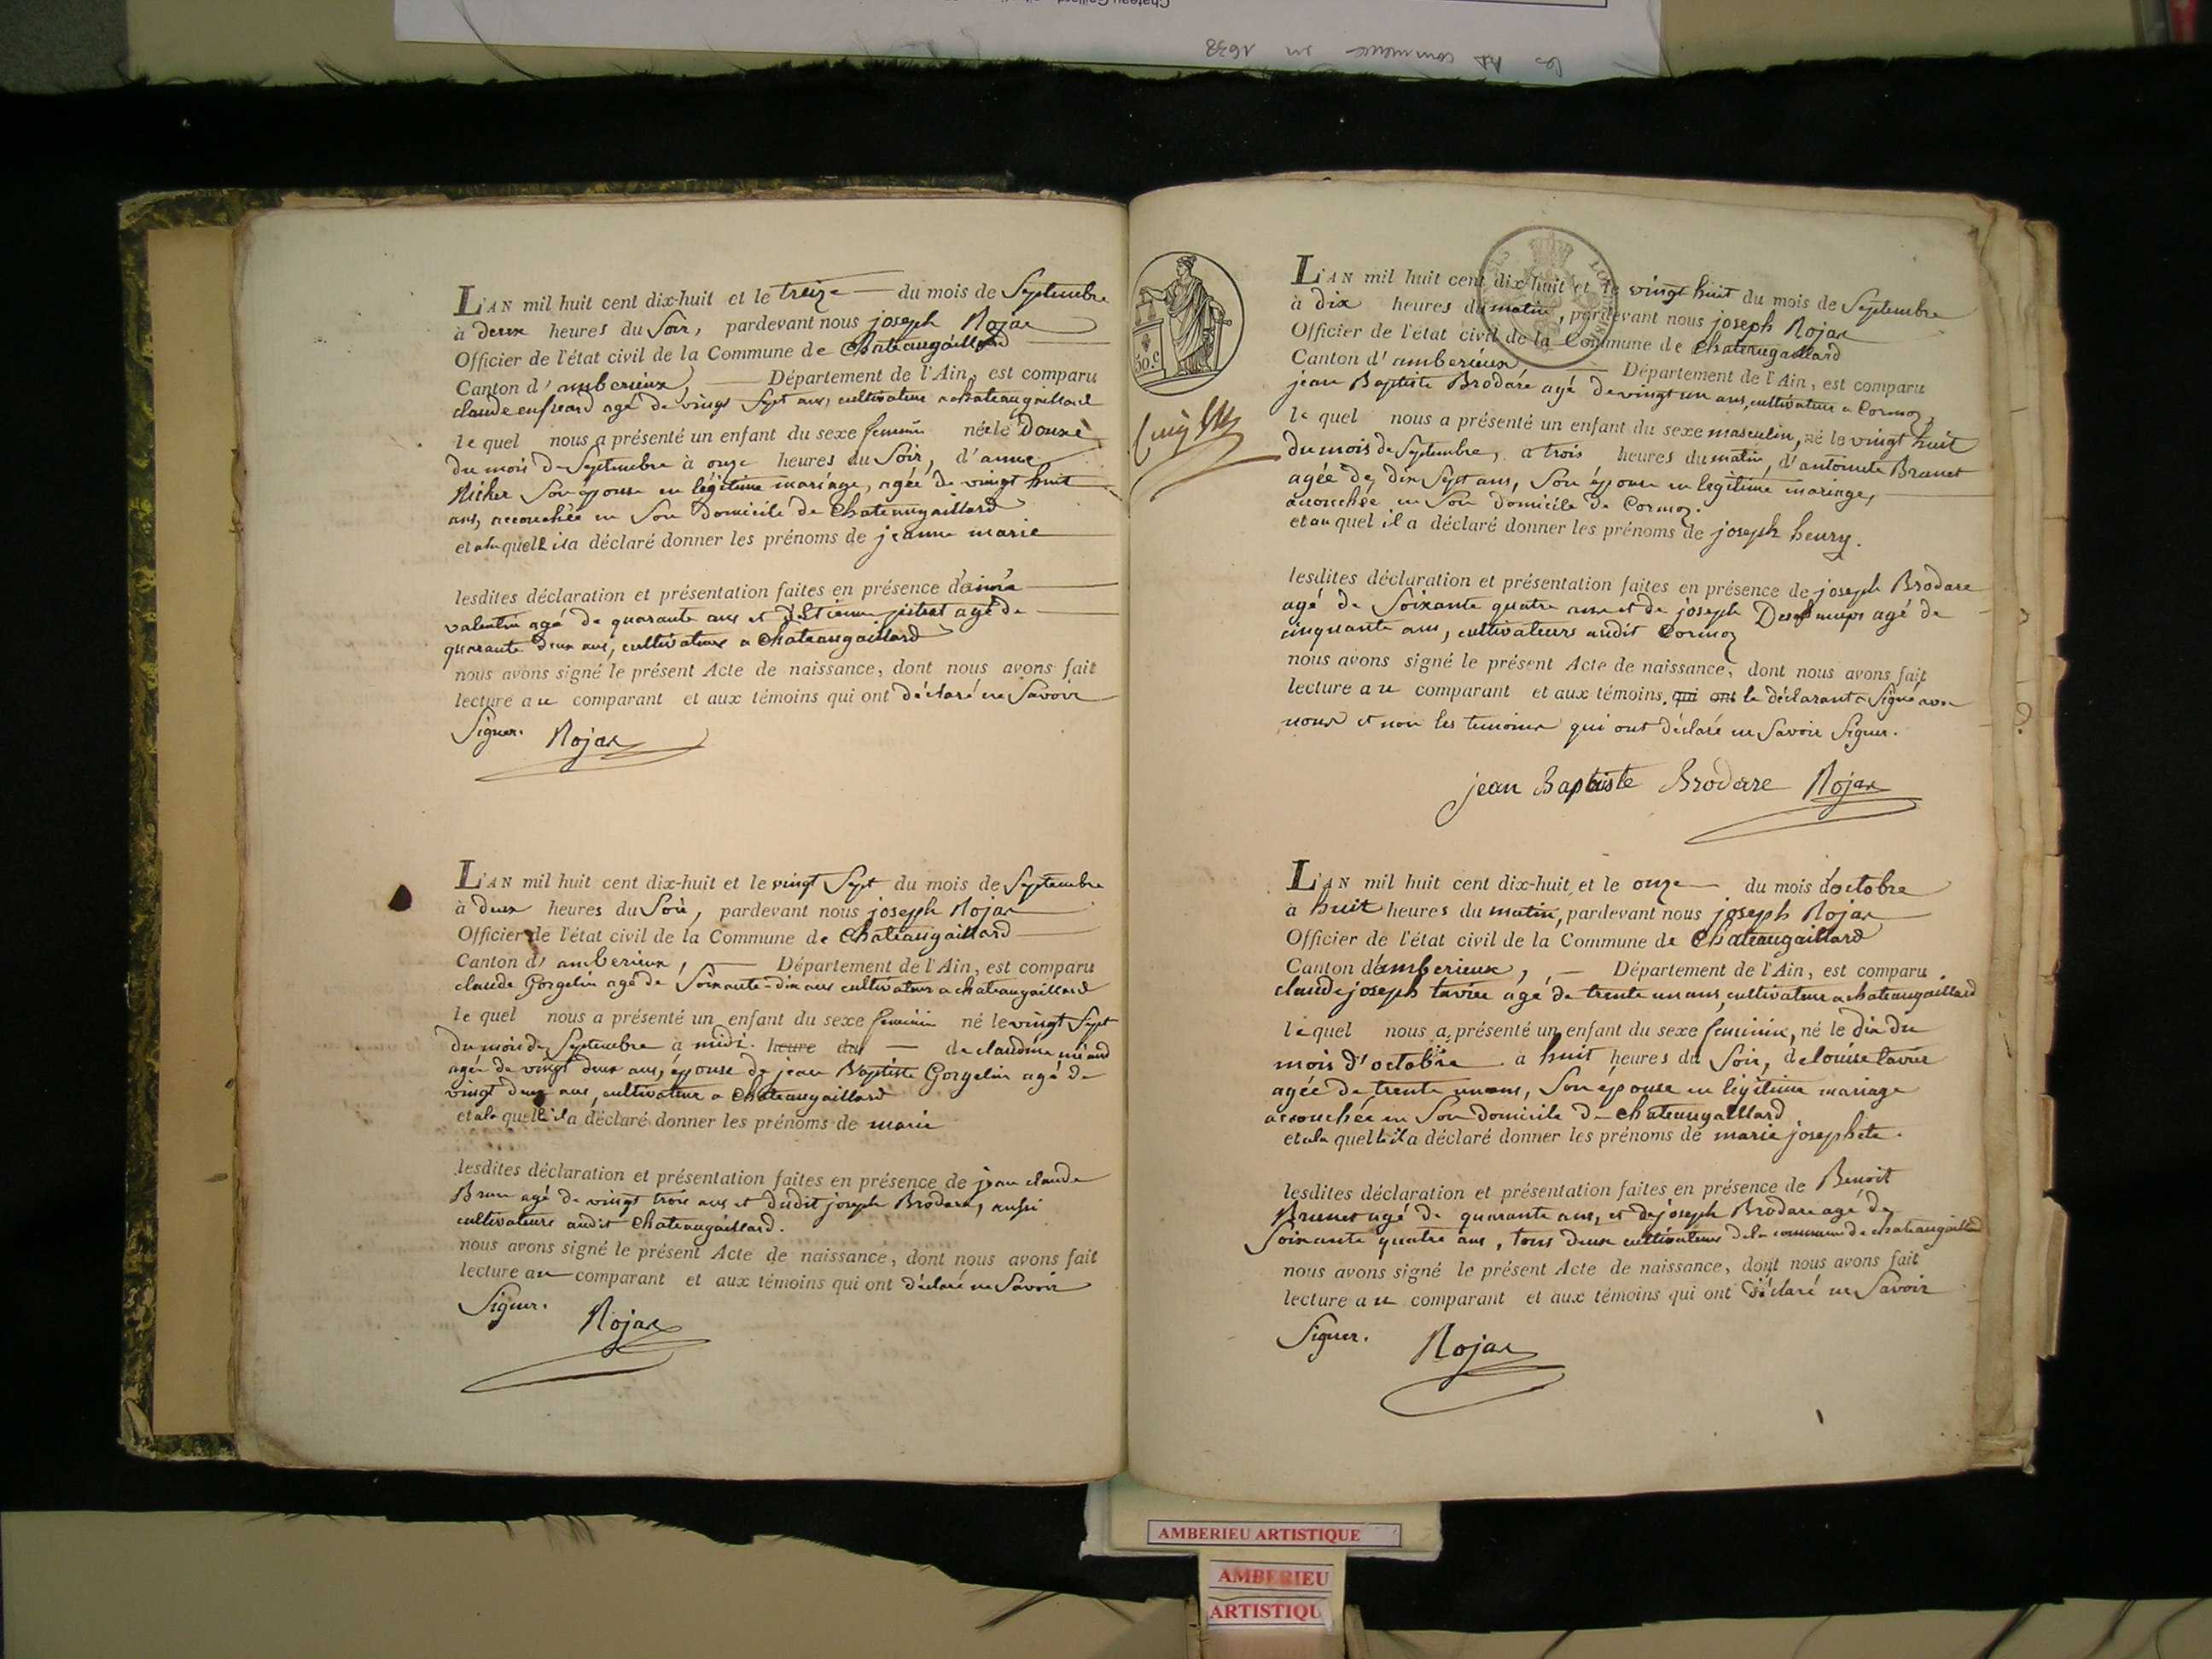 les commence en 1638
L'AN mil huit cent dix-huit et le treize du mois de Septembre
à deux heures du Soir, pardevant nous joseph Rojat
Officier de l'état civil de la Commune de Chateaugaillard
Canton d'amberieux, Département de l'Ain, est comparu
claude agé de vingt Sept ans, cultivateur a chateaugaillard
le quel nous a présenté un enfant du sexe feminin né le Douze
du mois de Septembre à onze heures du Soir, d'anne
Richer Son épouse en légitime mariage, agée de vingt huit
ans, accouchée en Son Domicile de Chateaugaillard
et a la quelle il a déclaré donner les prénoms de jeanne marie
lesdites déclaration et présentation faites en présence d'aimé
valentin agé de quarante ans et d'Etienne agé de
quarante deux ans, cultivateurs a Chateaugaillard
nous avons signé le présent Acte de naissance, dont nous avons fait
lecture au comparant et aux témoins qui ont déclaré ne Savoir
Signer. Rojat
L'AN mil huit cent dix-huit et le vingt Sept du mois de Septembre
à deux heures du Soir, pardevant nous joseph Rojat
Officier de l'état civil de la Commune de Chateaugaillard
Canton d'amberieux, Département de l'Ain, est comparu
claude Gorgelin agé de Soixante-dix ans cultivateur a chateaugaillard
le quel nous a présenté un enfant du sexe feminin né le vingt Sept
du mois de Septembre à midi. heure du de claudine
agée de vingt deux ans, épouse de jean Baptiste Gorgelin agé de
vingt deux ans, cultivateur a Chateaugaillard
et a la quelle il a déclaré donner les prénoms de marie
lesdites déclaration et présentation faites en présence de jean claude
Brun agé de vingt trois ans et dudit joseph Brodare, aussi
cultivateurs audit Chateaugaillard.
nous avons signé le présent Acte de naissance, dont nous avons fait
lecture au comparant et aux témoins qui ont déclaré ne Savoir
Signer. Rojat
50.c
L'AN mil huit cent dix-huit et le vingt huit du mois de Septembre
à dix heures du matin, pardevant nous joseph Rojat
Officier de l'état civil de la Commune de Chateaugaillard
Canton d'amberieux, Département de l'Ain, est comparu
jean Baptiste Brodare agé de vingt un ans, cultivateur a Cormoz
le quel nous a présenté un enfant du sexe masculin, né le vingt huit
du mois de Septembre, a trois heures du matin, d'antoinete Brunet
agée de dix Sept ans, Son épouse en legitime mariage,
accouchée en Son Domicile de Cormoz.
et au quel il a déclaré donner les prénoms de joseph henry.
lesdites déclaration et présentation faites en présence de joseph Brodare
agé de Soixante quatre ans et de joseph agé de
cinquante ans, cultivateurs audit Cormoz
nous avons signé le présent Acte de naissance, dont nous avons fait
lecture au comparant et aux témoins. qui ont le déclarant a Signé avec
nous et non les temoins qui ont déclaré ne Savoir Signer.
jean Baptiste Brodare Rojat
L'AN mil huit cent dix-huit et le onze du mois d'octobre
à huit heures du matin, pardevant nous joseph Rojat
Officier de l'état civil de la Commune de Chateaugaillard
Canton d'amberieux, Département de l'Ain, est comparu
claude joseph tavier agé de trente un ans, cultivateur a chateaugaillard
le quel nous a présenté un enfant du sexe feminin, né le dix du
mois d'octobre a huit heures du Soir, de louise tavier
agée de trente un ans, Son épouse en légitime mariage
accouchée en Son Domicile de chateaugaillard
et a la quelle il a déclaré donner les prénoms de marie josephete.
lesdites déclaration et présentation faites en présence de Benoit
Brunet agé de quarante ans, et de joseph Brodare agé de
Soixante quatre ans, tous deux cultivateurs de la commune de chateaugaillard
nous avons signé le présent Acte de naissance, dont nous avons fait
lecture au comparant et aux témoins qui ont déclaré ne Savoir
Signer. Rojat
AMBERIEU ARTISTIQUE
AMBERIEU
ARTISTIQU